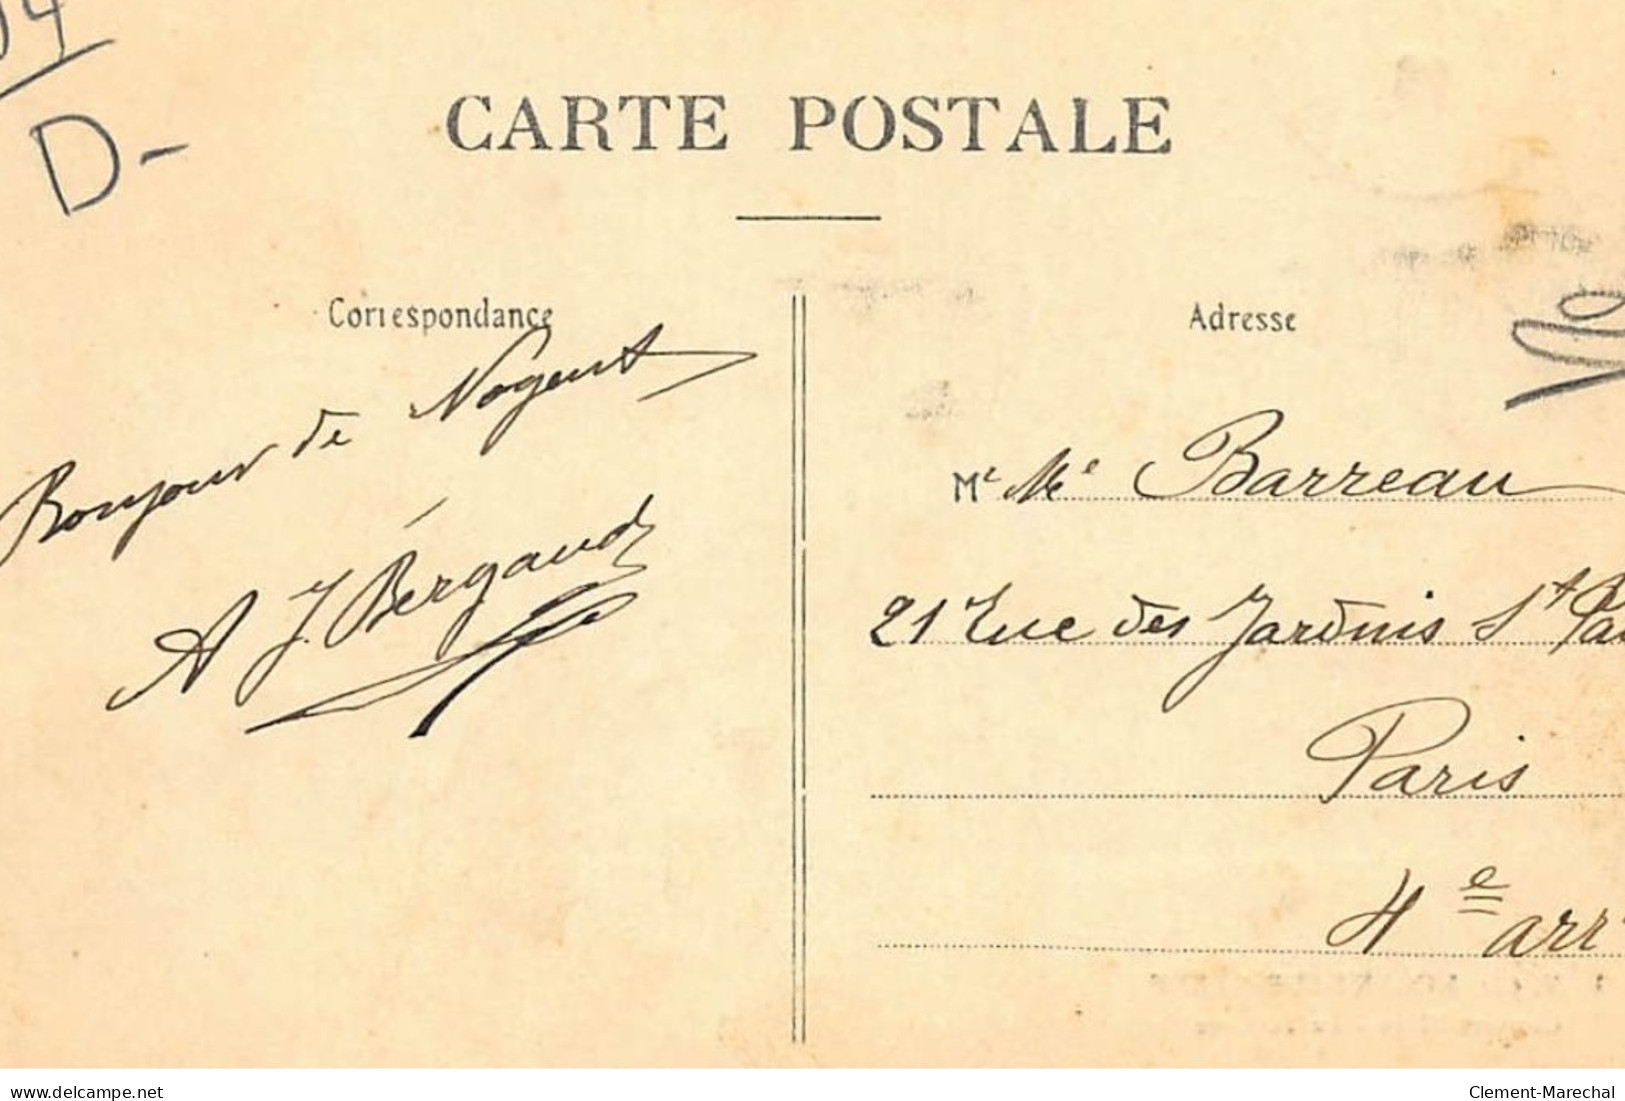 D-
CARTE POSTALE
Correspondance
Adresse
Bonjour de Nogent
A J. Bergaud
M
Barreau
21 rue des Jardins St
Paris
4e arr
delcampe.net
Clement-Marechal